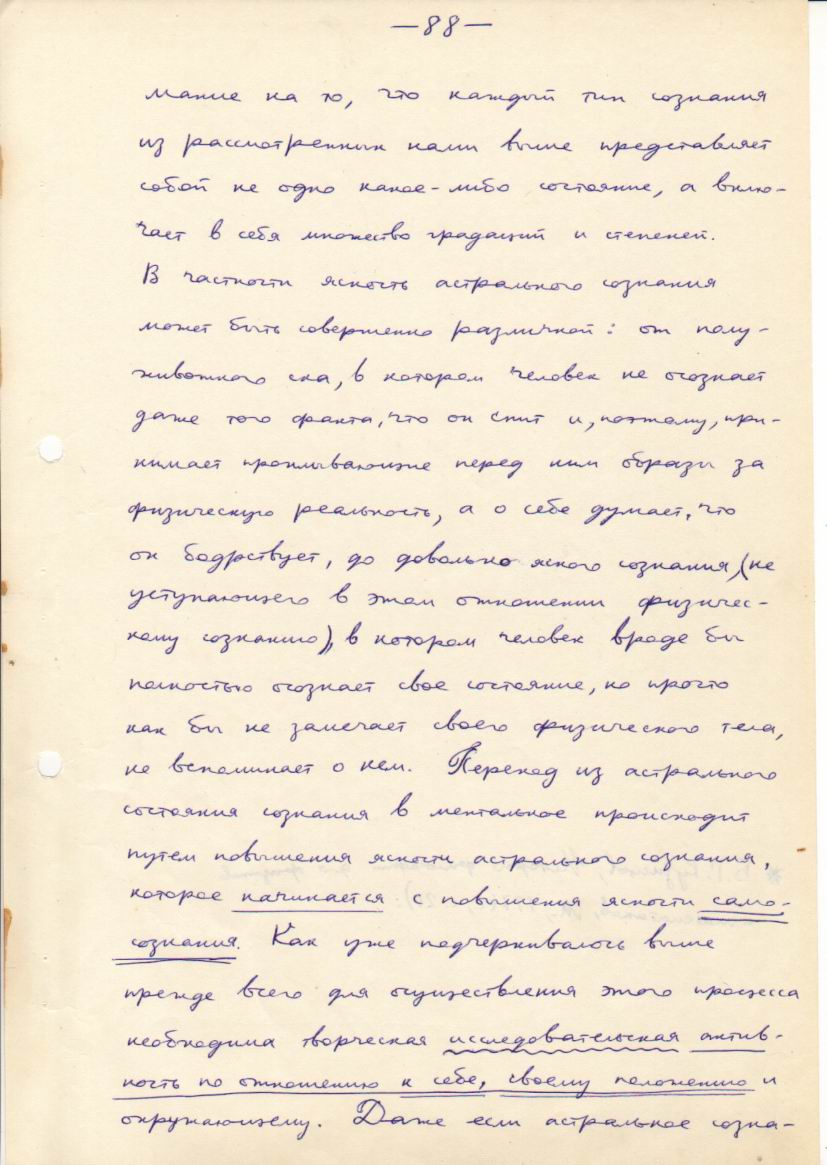 —88—
мание на то, что каждый тип сознания
из рассмотренных нами выше представляет
собой не одно какое-либо состояние, а вклю-
чает в себя множество градаций и степеней.
В частности ясность астрального сознания
может быть совершенно различной: от полу-
животного сна, в котором человек не осознает
даже того факта, что он спит и, поэтому, при-
нимает проплывающие перед ним образы за
физическую реальность, а о себе думает, что
он бодрствует, до довольно ясного сознания (не
уступающего в этом отношении физичес-
кому сознанию), в котором человек вроде бы
полностью осознает свое состояние, но просто
как бы не замечает своего физического тела,
не вспоминает о нем. Переход из астрального
состояния сознания в ментальное происходит
путем повышения ясности астрального сознания,
которое начинается с повышения ясности само-
сознания. Как уже подчеркивалось выше
прежде всего для осуществления этого процесса
необходима творческая исследовательская актив-
ность по отношению к себе, своему положению и
окружающему. Даже если астральное созна-